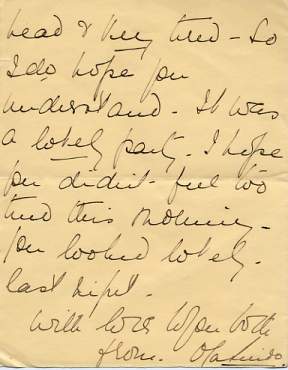 head & very tired - So
I do hope you
understand - It was
a lovely party. I hope
you didn't feel too
tired this morning -
you looked lovely.
last night -
with love to you both
from.